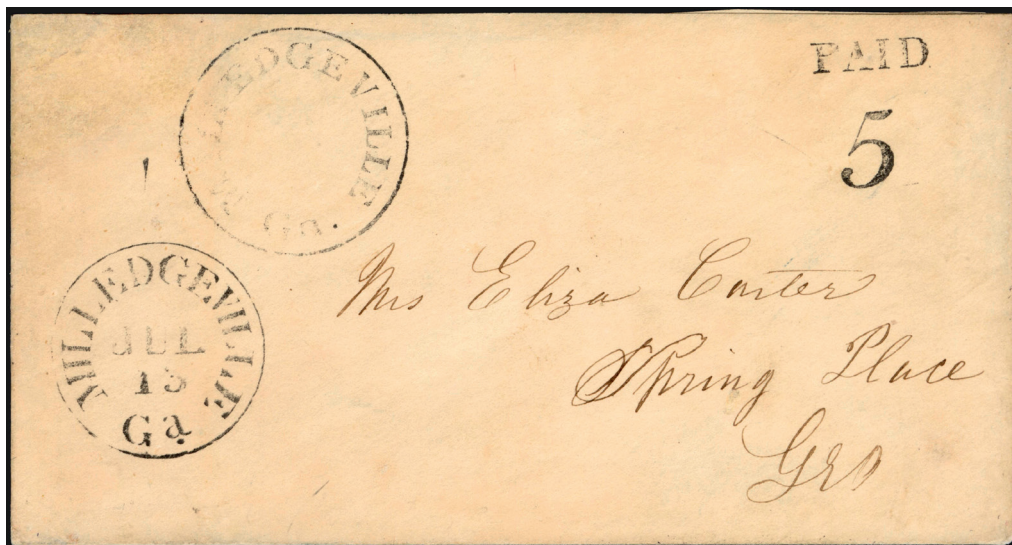 MILLEDGEVILLE
Ga.
PAID
5
MILLEDGEVILLE
JUL
13
Ga
Mrs Eliza Carter
Spring Place
Geo